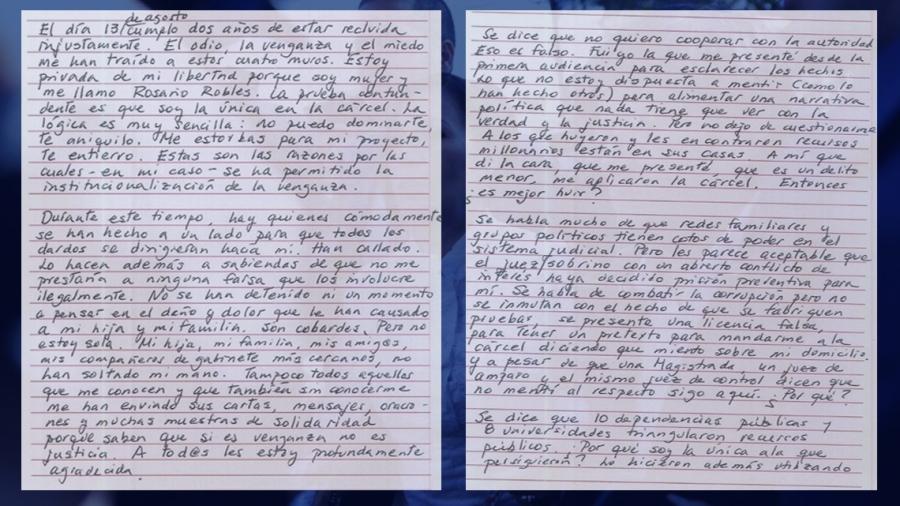 de agosto
El día 13 cumplo dos años de estar recluida
injustamente. El odio, la venganza y el miedo
me han traído a estos cuatro muros. Estoy
privada de mi libertad porque soy mujer y
me llamo Rosario Robles. La prueba contun-
dente es que soy la única en la cárcel. La
lógica es muy sencilla: no puedo dominarte,
te aniquilo. Me estorbas para mi proyecto,
te entierro. Estas son las razones por las
cuales - en mi caso - se ha permitido la
institucionalización de la venganza.
Durante este tiempo, hay quienes cómodamente
se han hecho a un lado para que todos los
dardos se dirigieran hacia mí. Han callado.
Lo hacen además a sabiendas de que no me
prestaría a ninguna farsa que los involucre
ilegalmente. No se han detenido ni un momento
a pensar en el daño y dolor que le han causado
a mi hija y mi familia. Son cobardes. Pero no
estoy sola. Mi hija, mi familia, mis amig@s,
mis compañeros de gabinete más cercanos, no
han soltado mi mano. Tampoco todos aquellos
que me conocen y que también sin conocerme
me han enviado sus cartas, mensajes, oracio-
nes y muchas muestras de solidaridad
porque saben que si es venganza no es
justicia. A tod@s les estoy profundamente
agradecida.
Se dice que no quiero cooperar con la autoridad
Eso es falso. Fui yo la que me presenté desde la
primera audiencia para esclarecer los hechos.
Lo que no estoy dispuesta a mentir (como lo
han hecho otros) para alimentar una narrativa
política que nada tiene que ver con la
verdad y la justicia. Pero no dejo de cuestionarme
A los que huyeron y les encontraron recursos
millonarios están en sus casas. A mí que
di la cara, que me presenté, que es un delito
menor, me aplicaron la cárcel. Entonces
¿es mejor huir?
Se habla mucho de que redes familiares y
grupos políticos tienen cotos de poder en el
sistema judicial. Pero les parece aceptable que
el juez/sobrino con un abierto conflicto de
interés haya decidido prisión preventiva para
mí. Se habla de combatir la corrupción pero no
se inmutan con el hecho de que se fabriquen
pruebas, se presente una licencia falsa,
para tener un pretexto para mandarme a la
cárcel diciendo que miento sobre mi domicilio,
y a pesar de que una Magistrada, un juez de
amparo y el mismo juez de control dicen que
no mentí al respecto sigo aquí. ¿Por qué?
Se dice que 10 dependencias públicas y
8 universidades triangularon recursos
públicos. ¿Por qué soy la única a la que
persiguieron? Lo hicieron además utilizando